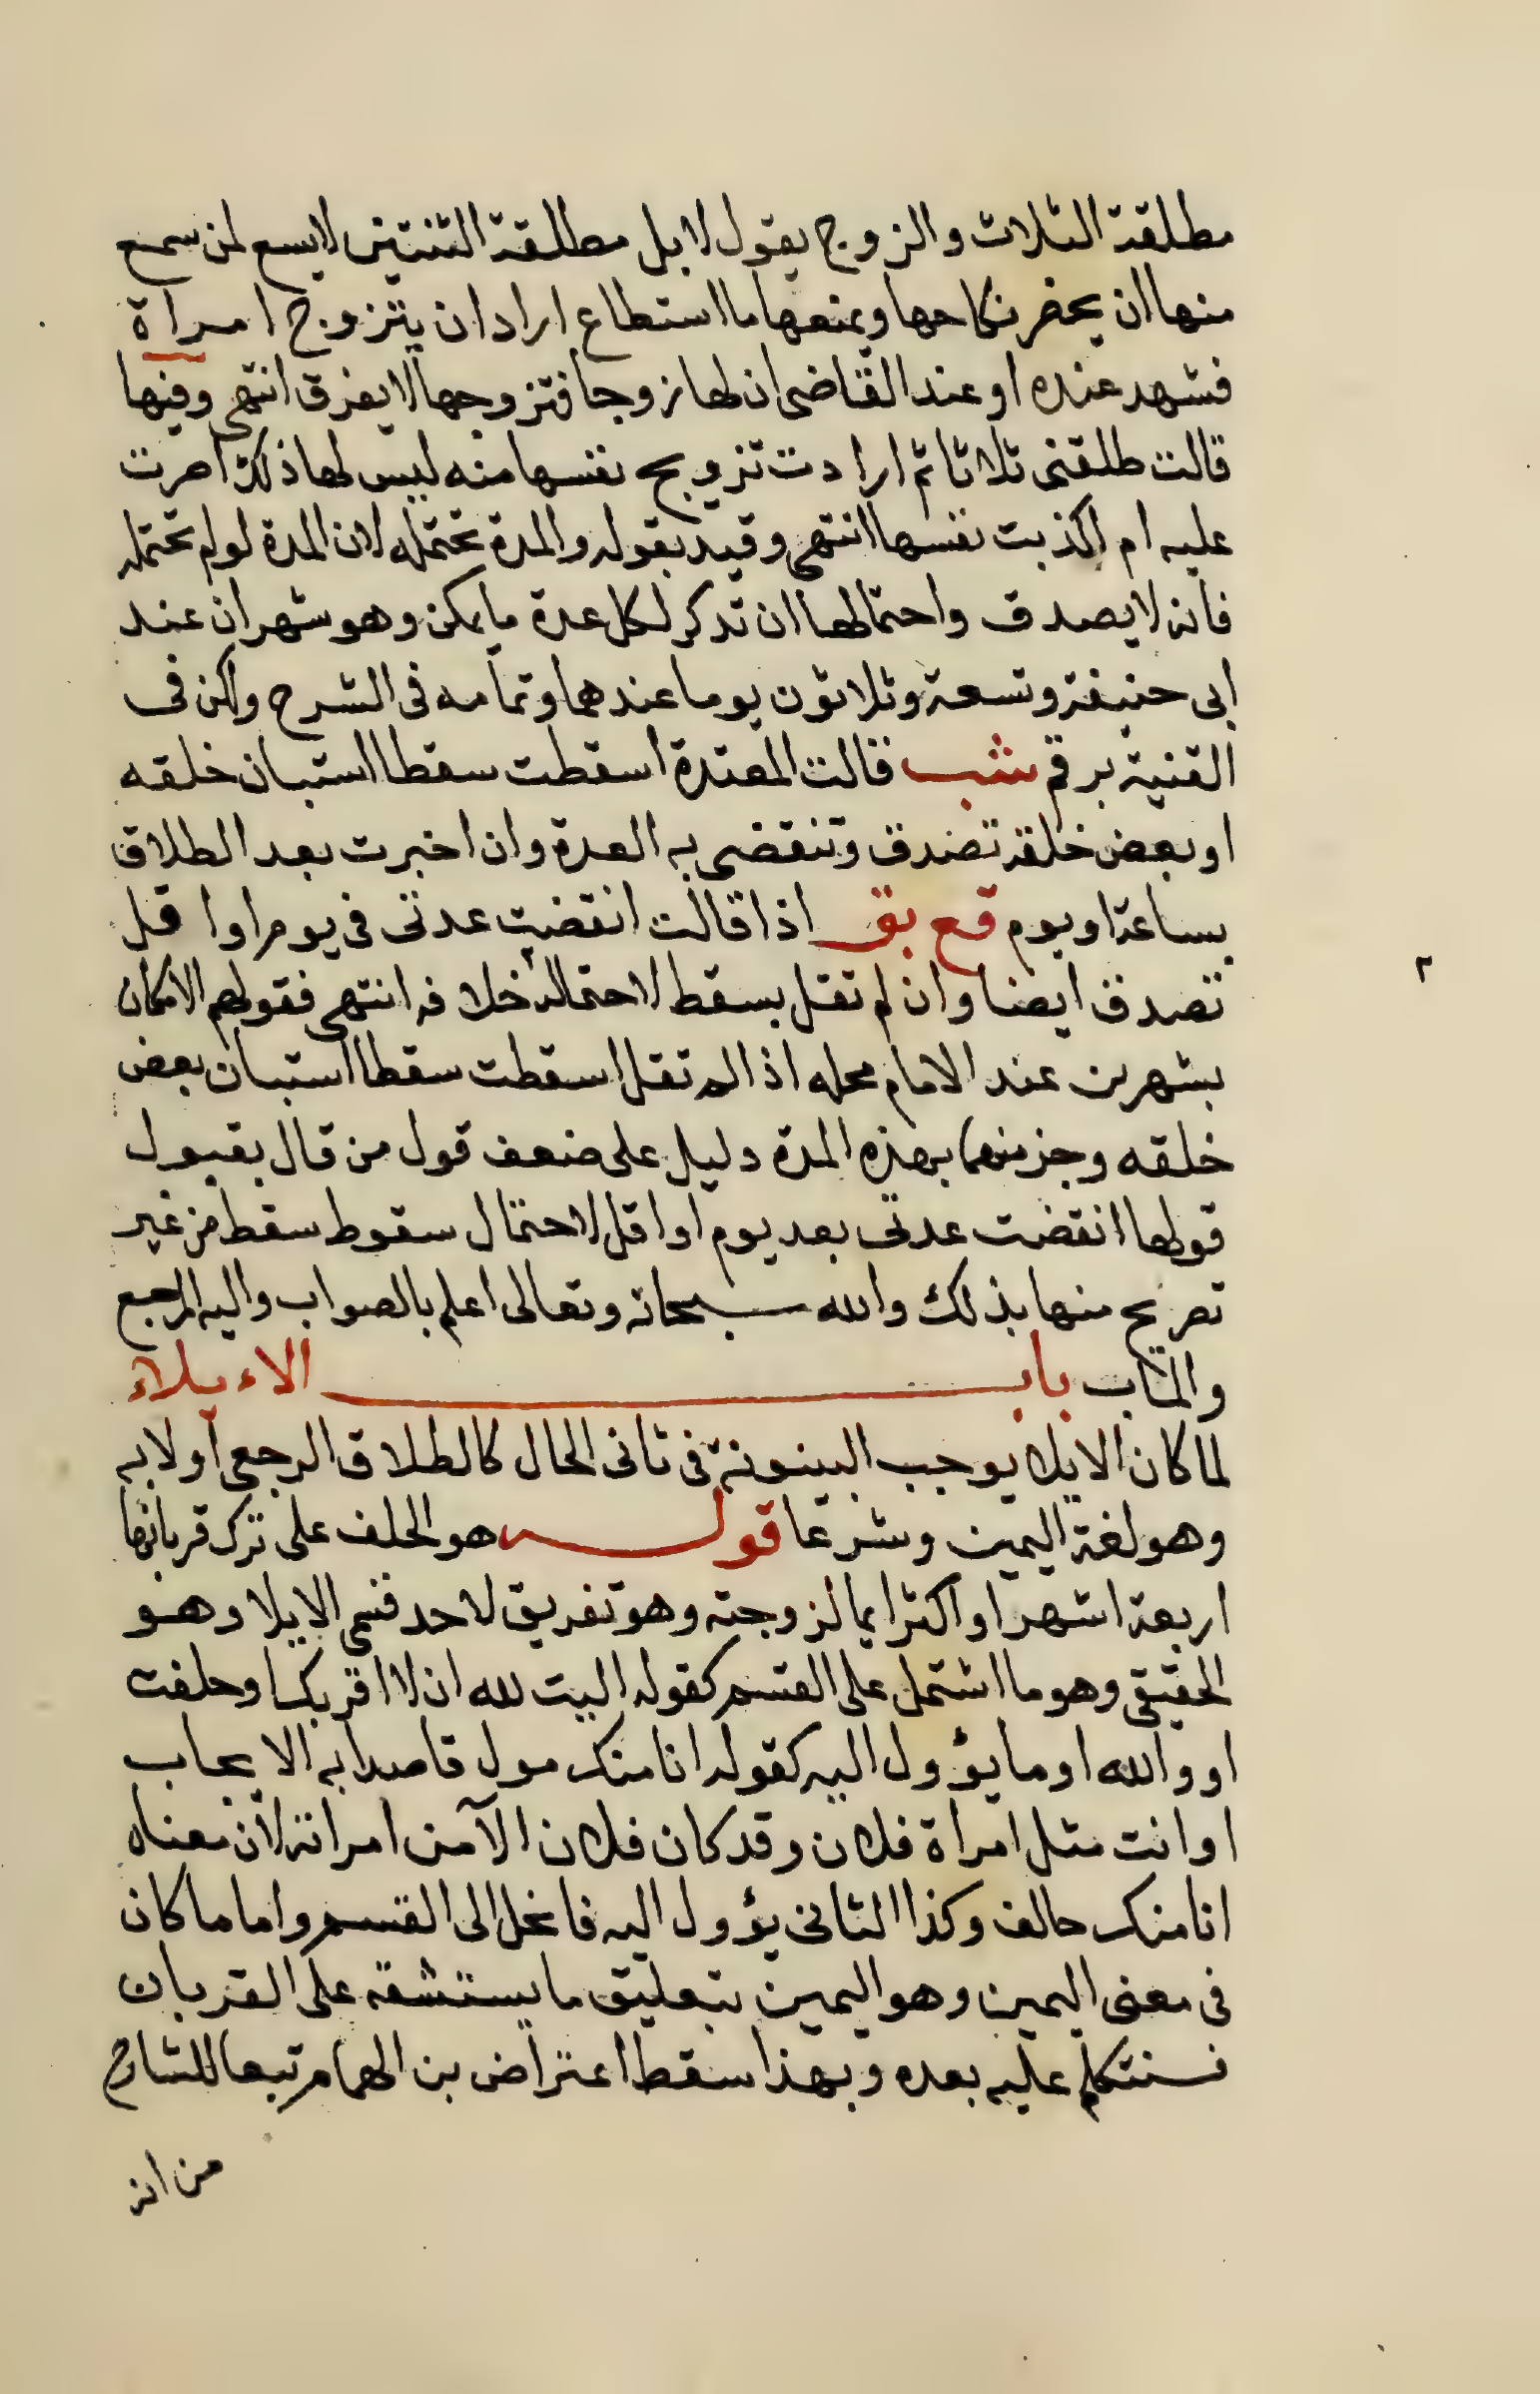 مطلقة الثلاث والزوج يقول لا بل مطلقة الثنتين لا يسع لمن سمع
منها ان يحضر نكاحها ويمنعها ما استطاع اراد ان يتزوج امراة
فشهد عنده او عند القاضى ان لها زوجا فتزوجها لا يفرق انتهى وفيها
قالت طلقنى ثلاثا ثم ارادت تزويج نفسها منه ليس لها ذلك اصرت
عليه ام اكذبت نفسها انتهى وقيد بقوله والمدة تحتمله لان المدة لو لم تحتمله
فانه لا يصدق واحتمالها ان تذكر لكل عدة ما يمكن وهو شهران عند
ابى حنيفة وتسعة وثلاثون يوما عندهما وتمامه فى الشرح ولكن فى
القنية برقم شب قالت المعتدة اسقطت سقطا استبان خلقه
او بعض خلقه تصدق وتنقضى به العدة وان اخبرت بعد الطلاق
بساعة او يوم قع بق اذا قالت انقضت عدتى فى يوم او اقل
تصدق ايضا وان لم تقل بسقط لاحتماله خلافه انتهى فقولهم الامكان
بشهرين عند الامام محله اذا لم تقل اسقطت سقطا استبان بعض
خلقه وجزمهم بهذه المدة دليل على ضعف قول من قال بقبول
قولها انقضت عدتى بعد يوم او اقل لاحتمال سقوط سقط من غير
تصريح منها بذلك والله سبحانه وتعالى اعلم بالصواب واليه المرجع
والمئاب باب الاءيلاء
لما كان الايلا يوجب البينونة فى ثانى الحال كالطلاق الرجعى اولا به
وهو لغة اليمين وشرعا قوله هو الحلف على ترك قربانها
اربعة اشهر او اكثر ايما لزوجته وهو تفريق لاحد قسمى الايلا وهو
الحقيقى وهو ما اشتمل على القسم كقوله اليت لله ان لا اقربك او حلفت
او والله او ما يؤول اليه كقوله انا منك مول قاصدا به الايجاب
او انت مثل امراة فلان وقد كان فلان الآمن امراته لان معناه
انا منك حالف وكذا الثانى يؤول اليه فانحل الى القسم واما ما كان
فى معنى اليمين وهو اليمين بتعليق ما يستشقه على القربان
فسنتكلم عليه بعده وبهذا سقط اعتراض بن الهمام تبعا للشارح
من انه
٢